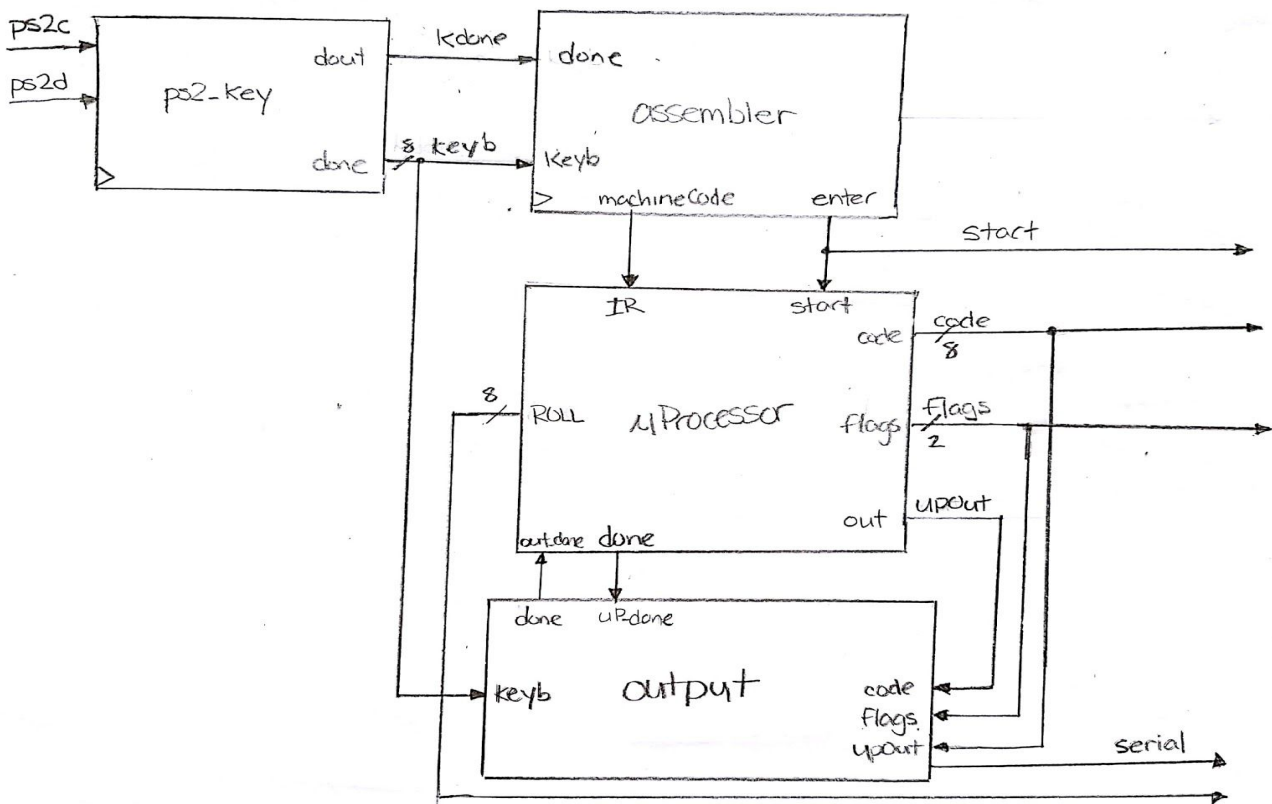 ps2c
ps2d
dout
ps2_key
done
Kdone
8 keyb
done
assembler
Keyb
machineCode
enter
start
IR
start
code
code
8
8
ROLL
µProcessor
flags
flags
2
out
upOut
out_done
done
done
uP_done
keyb
output
code
flags
upOut
serial